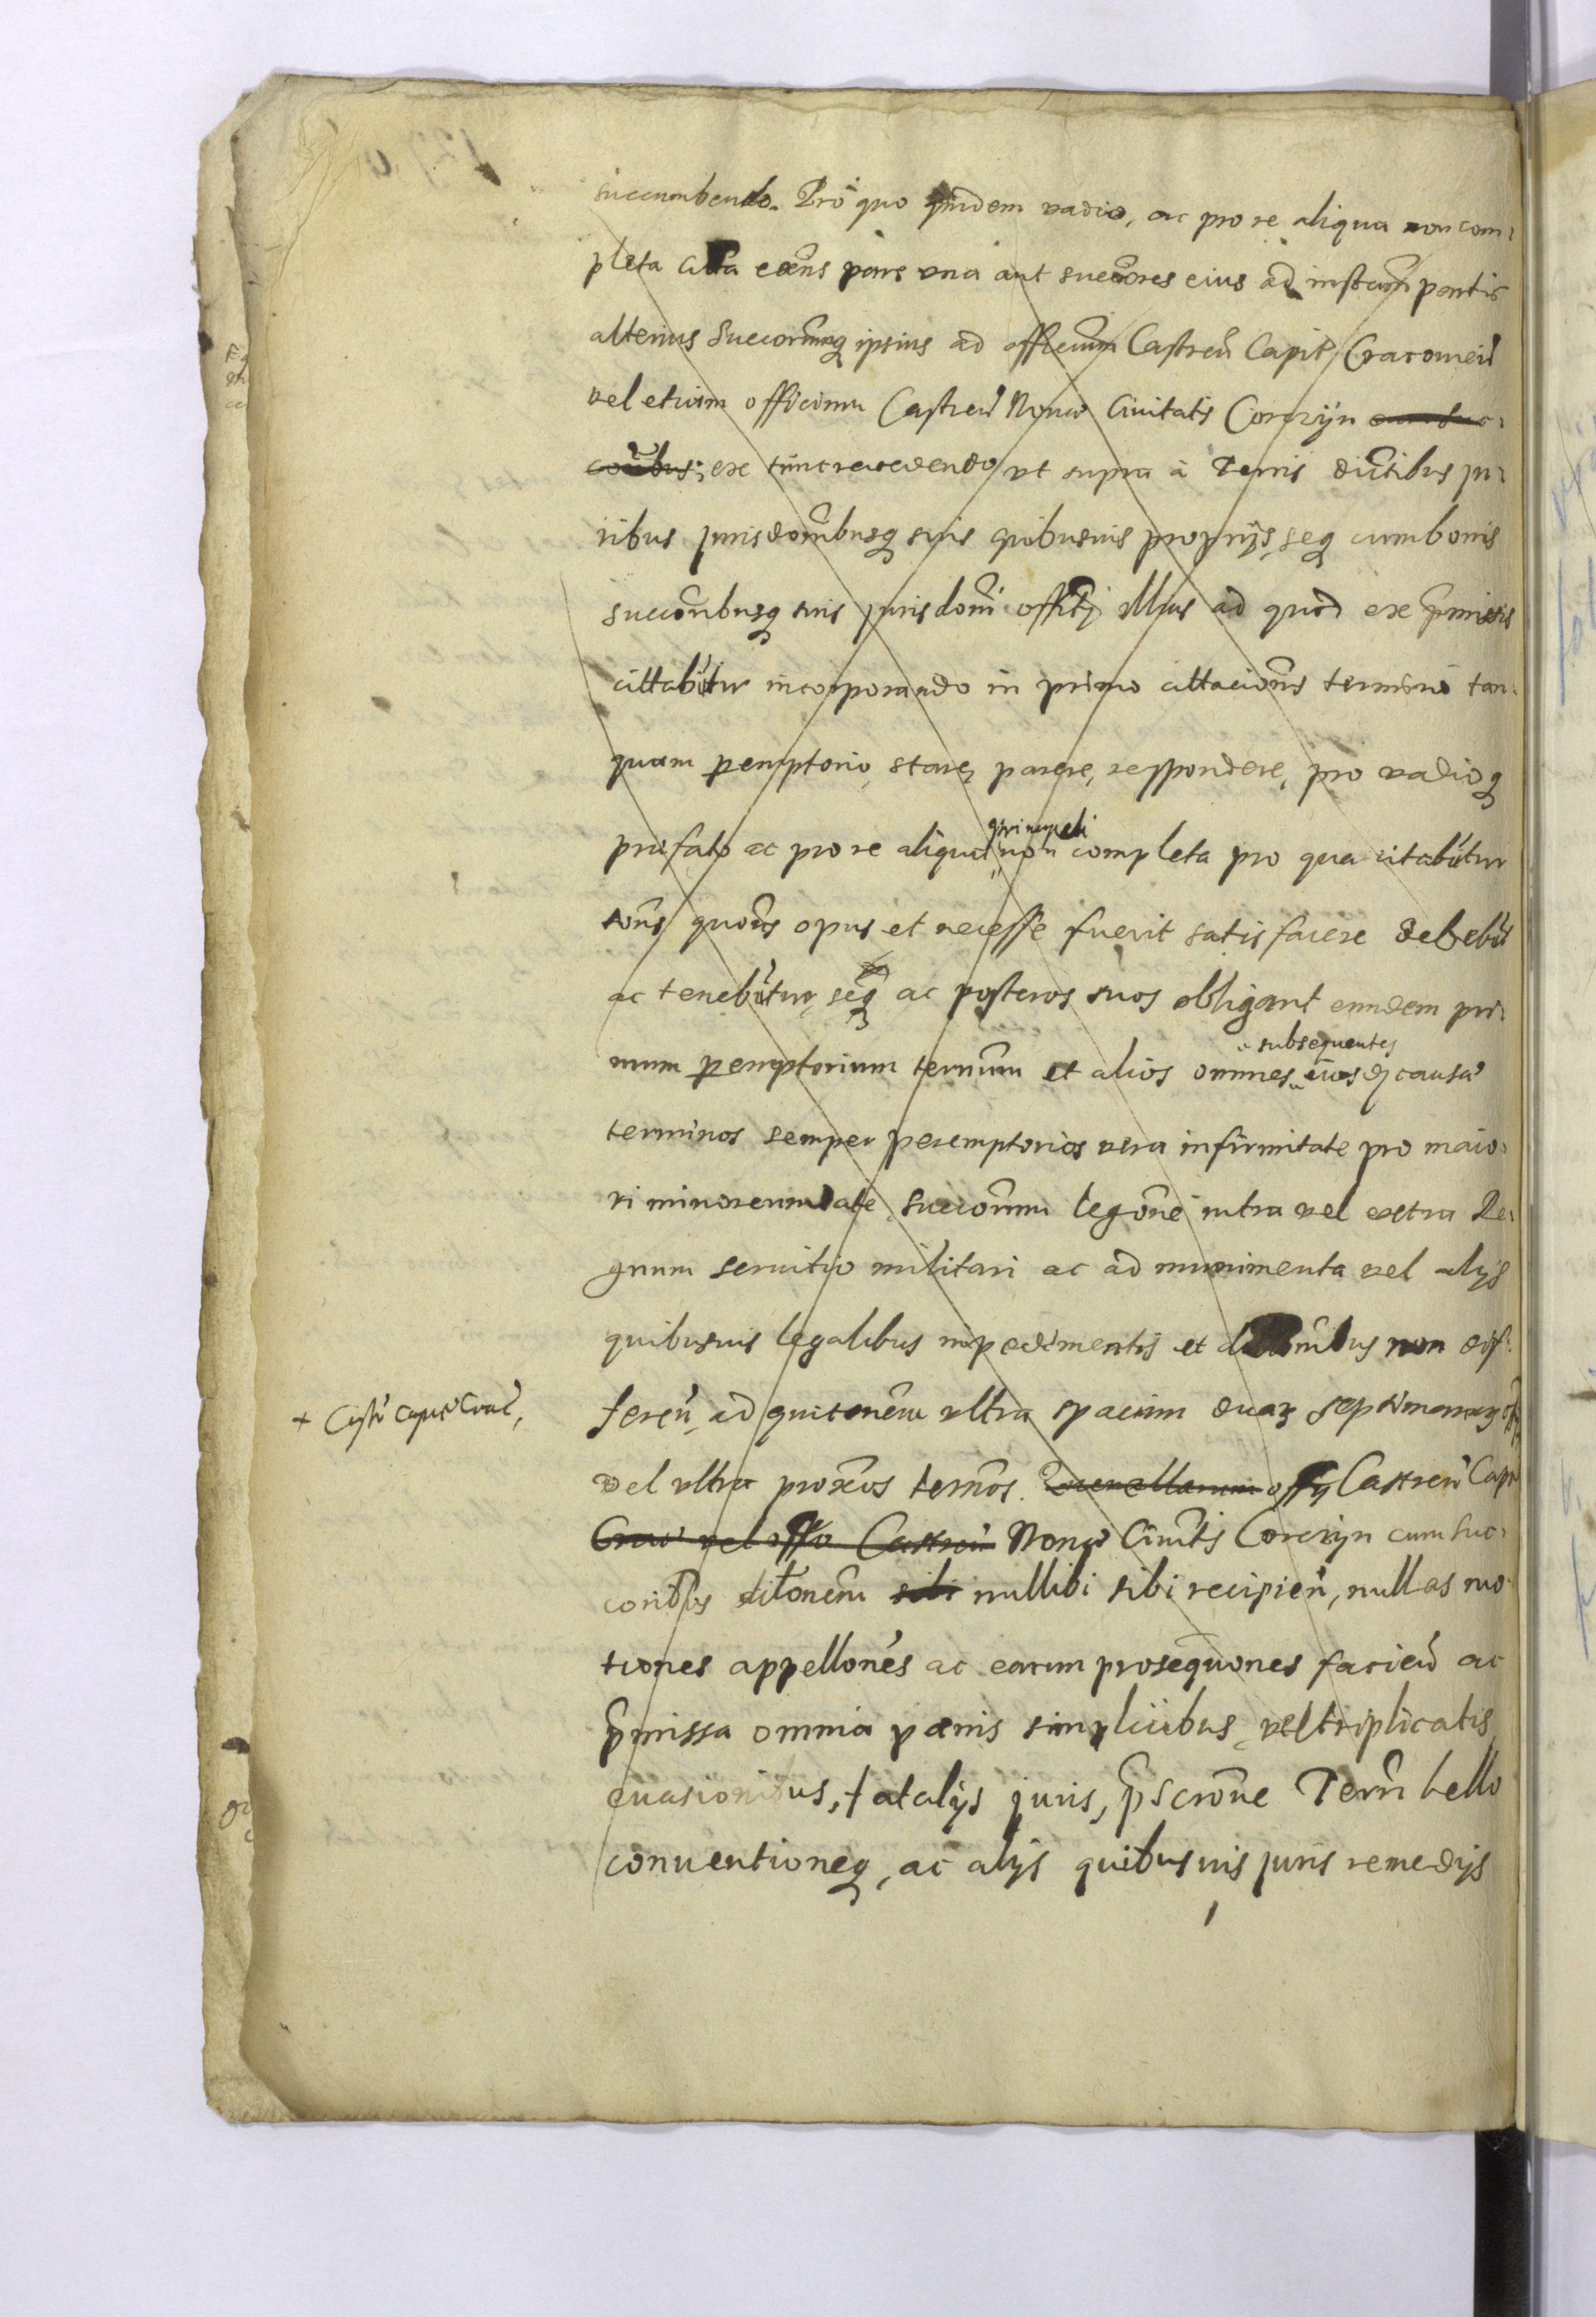 succumbendo. Pro quo quidem vadio, ac pro re aliqua non com-
pleta citta exñs pars una aut succores eius ad instam partis
alterius Succorumq ipsius ad officium Castreñ Capit Cracouieñ
vel etiam officium Castreñ Nouae Ciuitatis Corczÿn cum suc-
coribus; ex tunc recedendo ut supra à Terris districtibus ju-
ribus jurisdombusq suis quibusuis proprijs, seq cum bonis
succoribusq suis jurisdoni officij illius ad quod ex pmissis
cittabutur incorporando in primo cittacionis termino tan-
quam peremptorio, stare, parere, respondere, pro vadioq
praefato ac pro re aliqua principali non completa pro qua citabutur
totis quotis opus et necesse fuerit satisfacere debebut
ac tenebutur, seq ac posteros suos obligant eundem pri-
mum peremptorium termum et alios omnes subsequentes eiusdj causae
terminos semper peremptorios vera infirmitate pro maio-
ri minorennitate Succorum legone intra vel extra Re-
gnum seruitio militari ac ad munimenta vel alijs
quibusuis legalibus impedimentis et non dif-
+ Castr Capit Crac,
fereñ, ad quitonem ultra spacium duar septimanar
vel ultra proxos termos. Querellarum offij Castreñ Capit
Crac vel offo Castreñ Nouae Ciuitis Corczÿn cum suc-
coribus dilonem sibi nullibi sibi recipieñ, nullas mo-
tiones appellones ac earum prosequones facieñ ac
pmissa omnia paenis simplicibus, vel triplicatis
euasionibus, fatalijs juris, pscrone Terrñ bello
conuentioneq, ac alijs quibusuis juris remedijs